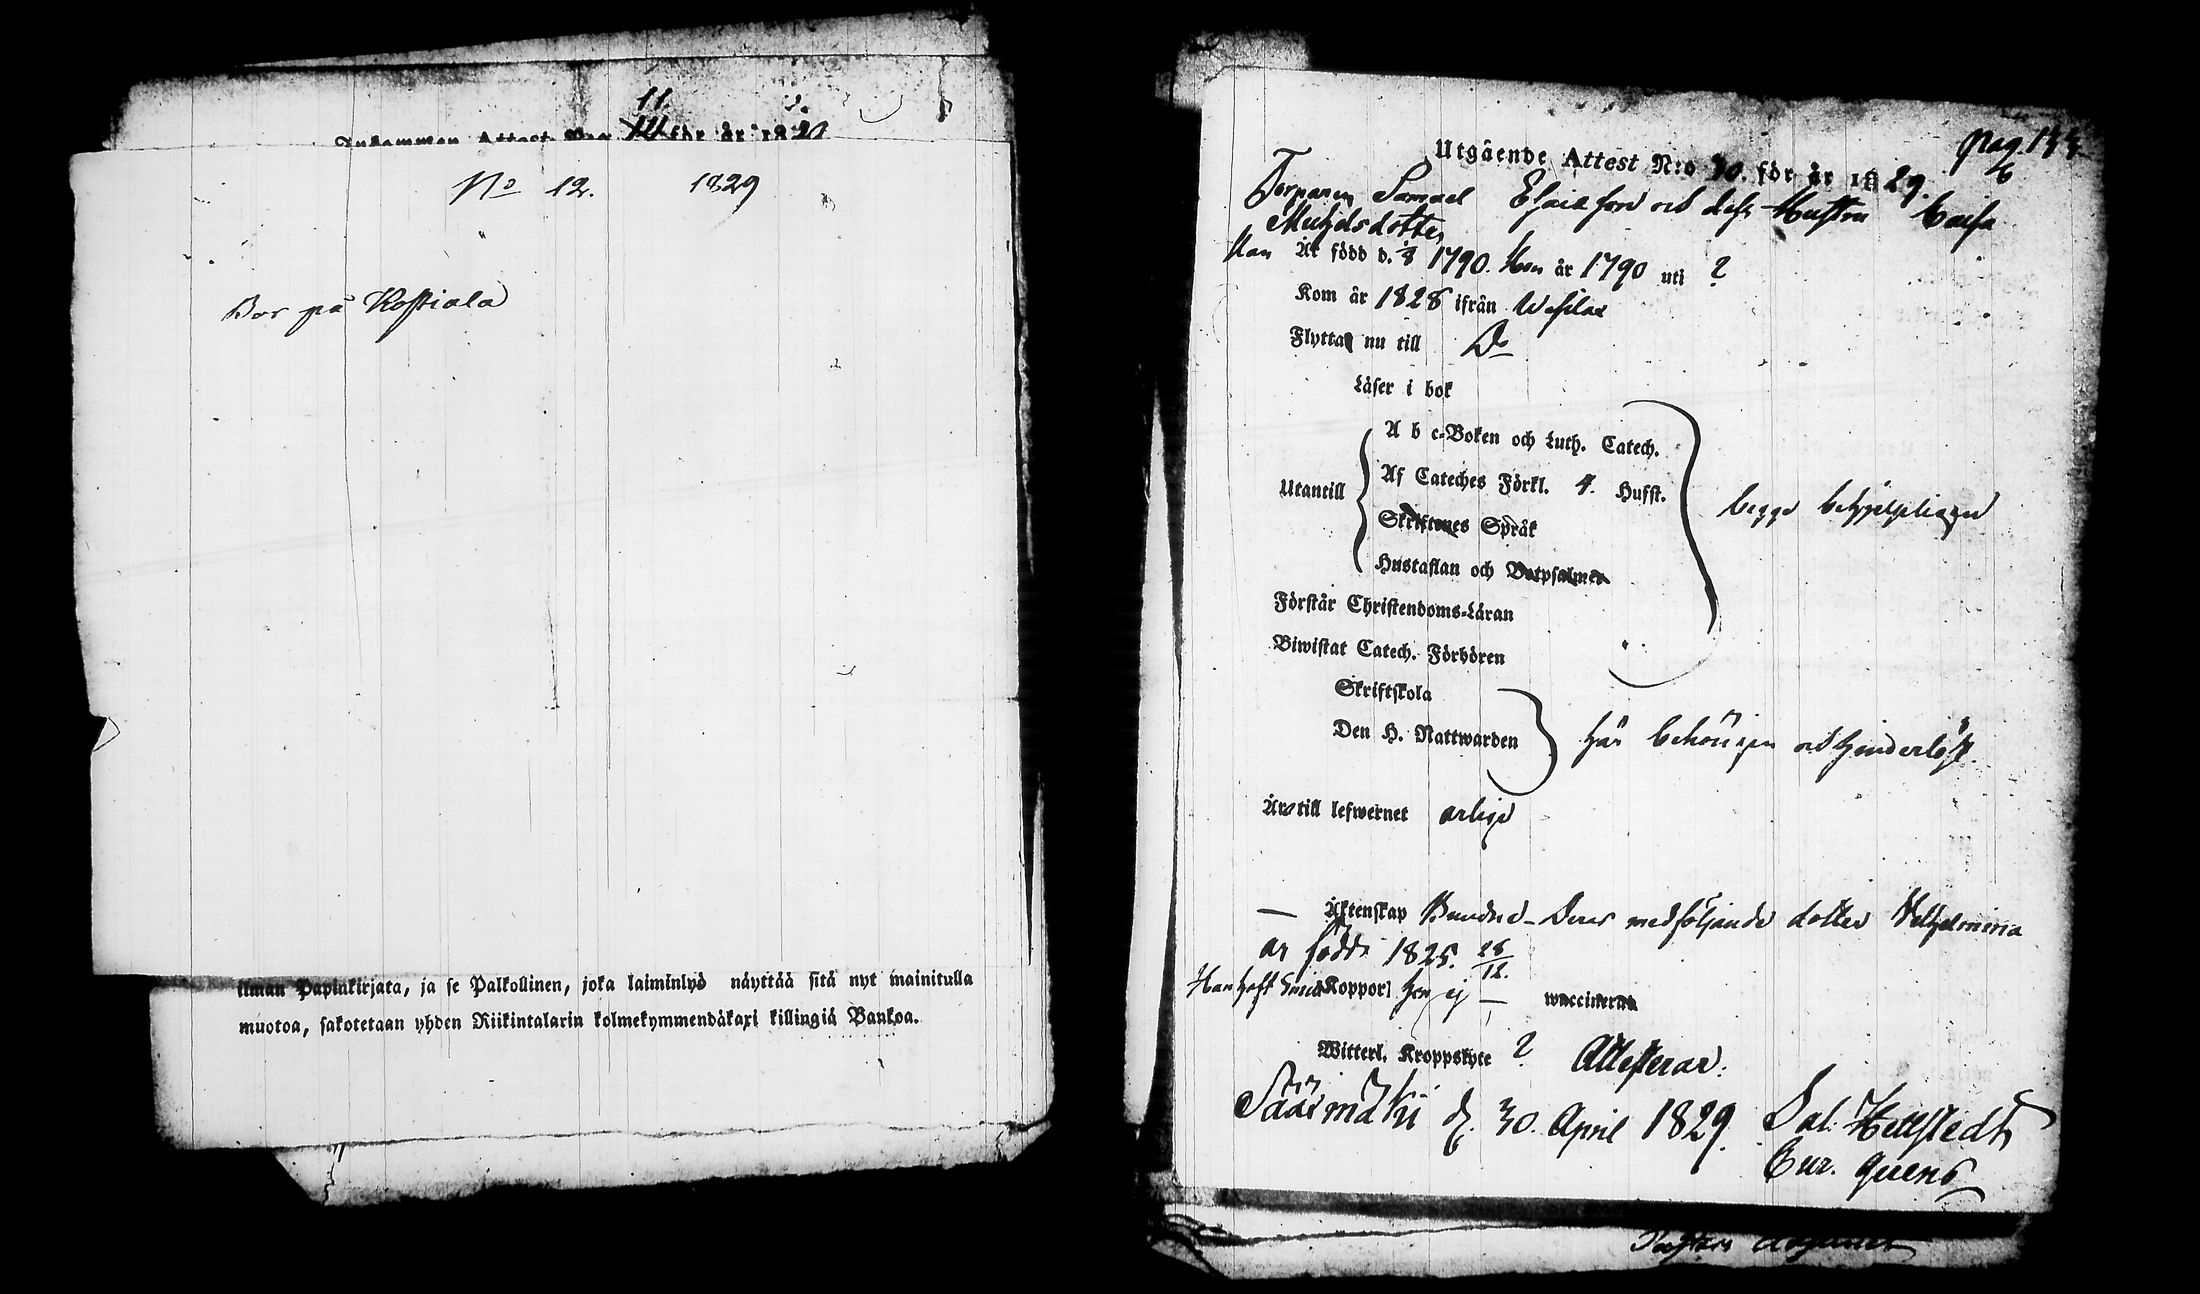 11
Inkommen Attest N:o för år 1829
No 12. 1829
Bor på Koskiala
ilman Papinkirjata, ja se Palkollinen, joka laiminlyö näyttää sitä nyt mainitulla
muotoa, sakotetaan yhden Riikintalarin kolmekymmendäkaxi killingiä Bankoa.
pag. 133
6
Utgående Attest N:o 30. för år 1829.
Torparen Samuel Esaiasson och dess Hustru Caisa
Michelsdotter
Han Är född d. 1790. Hon år 1790 uti ?
Kom år 1828 ifrån Wesilax
Flytta nu till Do
Läser i bok
A b c-Boken och Luth. Catech.
Utantill Af Cateches Förkl. 4. Hufst. begge behjelpligen
Skriftenes Språk
Hustaflan och Botpsalmer
Förstår Christendoms-Läran
Biwistat Catech. Förhören
Skriftskola
Den H. Nattwarden här behörigen och hinderlöst.
Äro till lefwernet ärlige
— Äktenskap Bundne – Deras medföljande dotter Wilhelmina
är född 1825. 28/12.
Han haft Koppor, hon ej — waccinerna
Witterl. Kroppslyte ? Attesterar.
Sääxmäki d. 30. April 1829. Sal: Hellstedt
Cur. guens